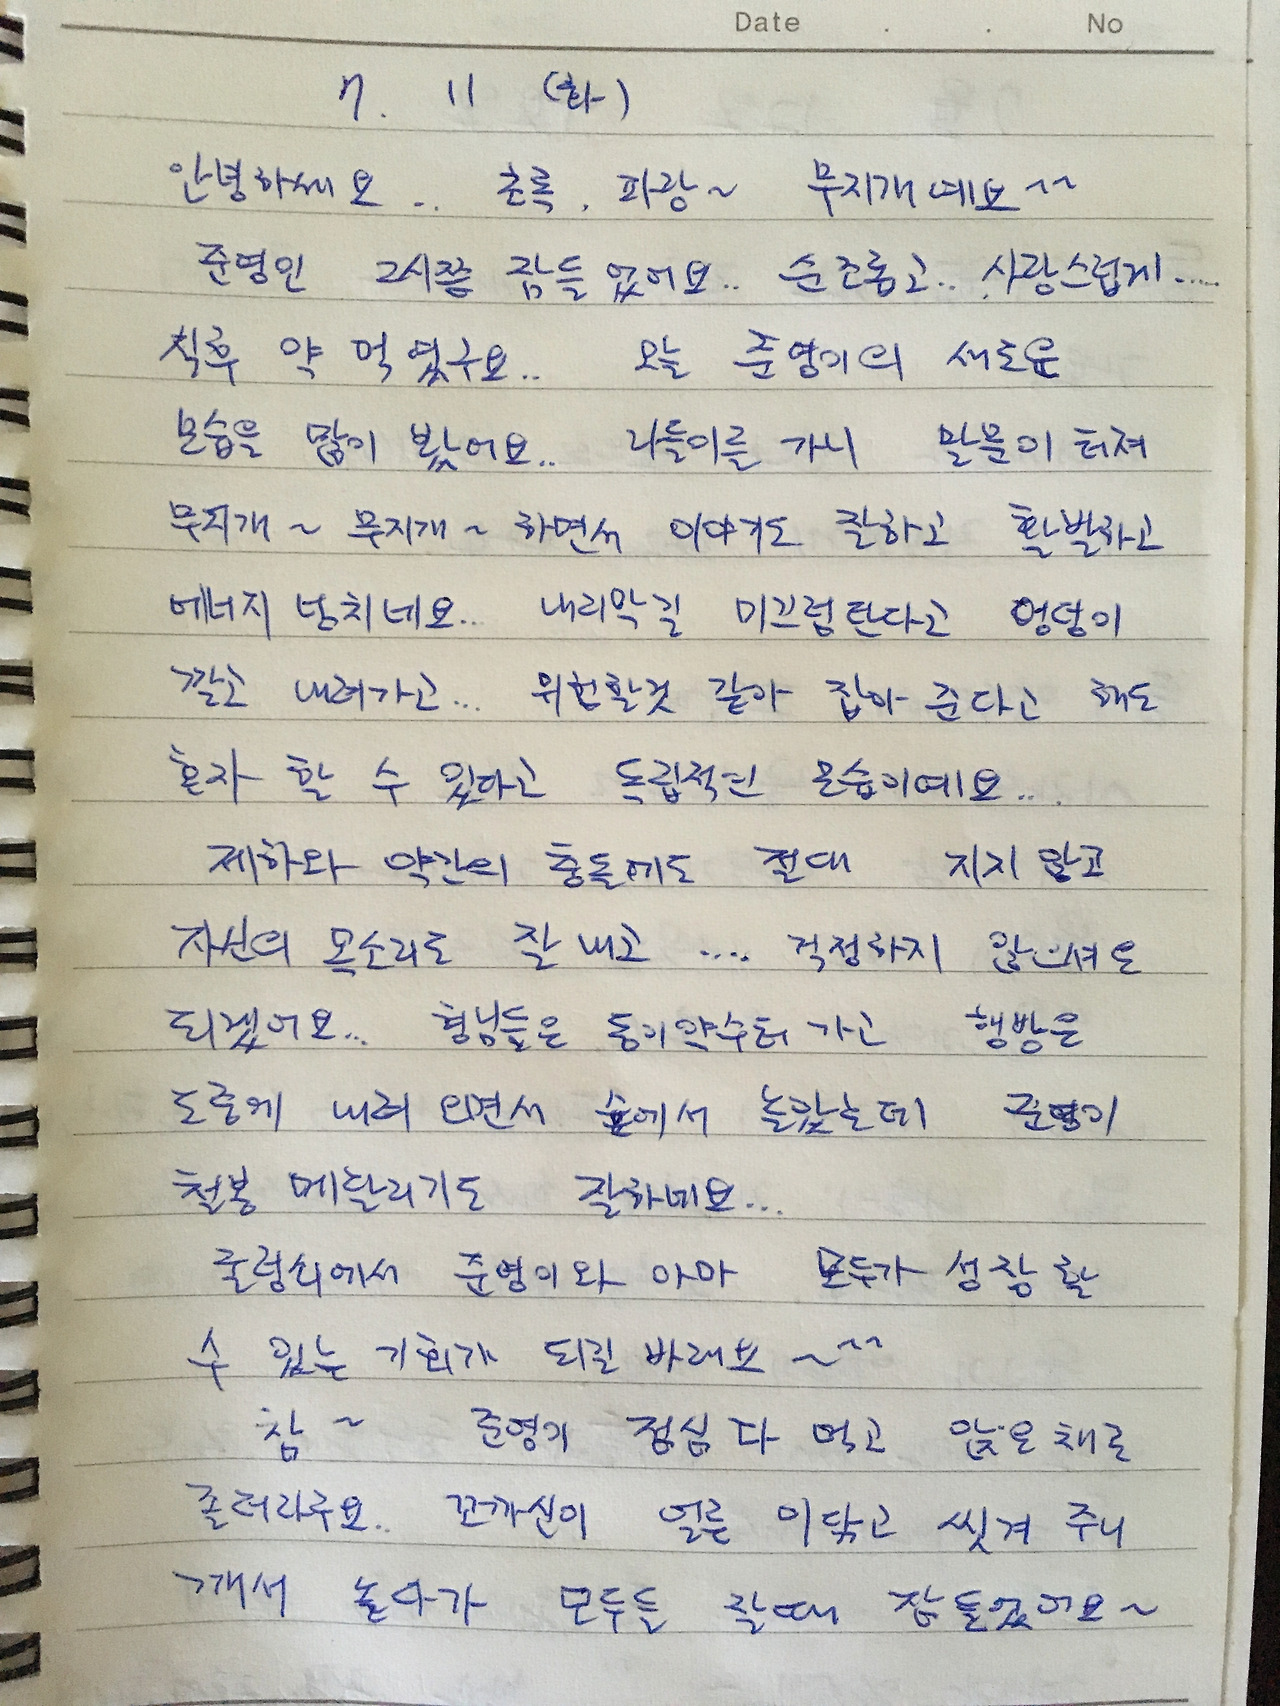 Date . . No
7. 11 (화)
안녕하세요.. 초록, 파랑~ 무지개예요^^
준영인 2시쯤 잠들었어요.. 순조롭고.. 사랑스럽게.....
식후 약 먹였구요.. 오늘 준영이의 새로운
모습을 많이 봤어요.. 나들이를 가니 말문이 터져
무지개~ 무지개~ 하면서 이야기도 잘하고 활발하고
에너지 넘치네요... 내리막길 미끄럼탄다고 엉덩이
깔고 내려가고... 위험할것 같아 잡아 준다고 해도
혼자 할 수 있다고 독립적인 모습이예요....
제하와 약간의 충돌에도 절대 지지 않고
자신의 목소리도 잘 내고 .... 걱정하지 않으셔도
되겠어요... 형님들은 동이약수터 가고 행방은
도중에 내려 오면서 숲에서 놀았는데 준영이
철봉 메달리기도 잘하네요...
굴렁쇠에서 준영이와 아마 모두가 성장 할
수 있는 기회가 되길 바래요 ~^^
참~ 준영이 점심 다 먹고 앉은채로
졸더라구요.. 꼬까신이 얼른 이닦고 씻겨 주니
깨서 놀다가 모두들 잘때 잠들었어요~